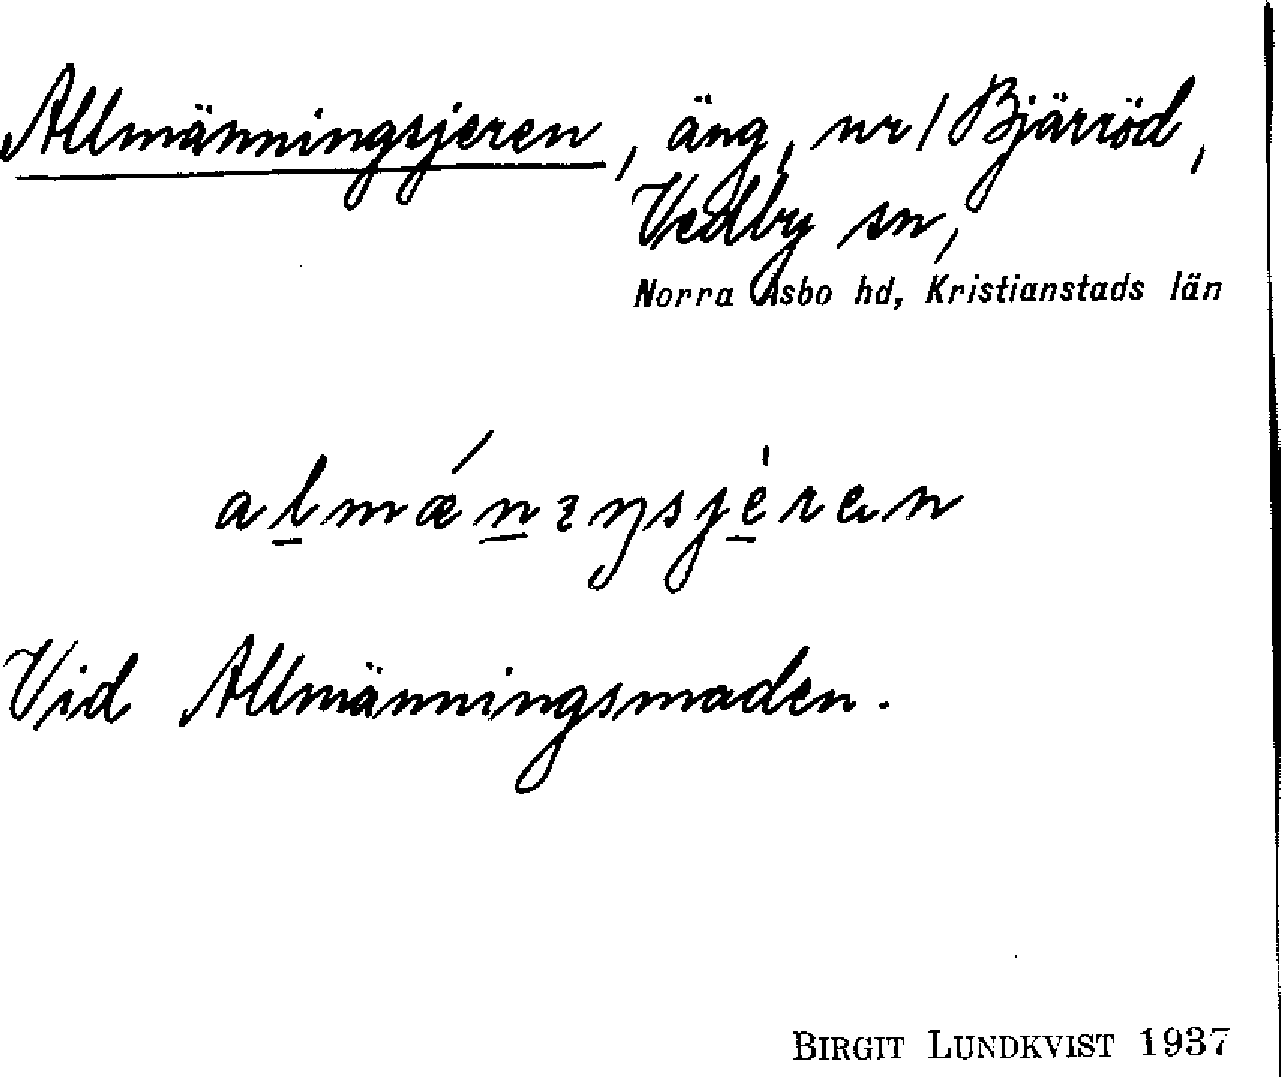 Allmänningsjeren, äng, nr 1 Bjärröd,
Vedby sn,
Norra Åsbo hd, Kristianstads län
almǽnıŋsjèrɐn
Vid Allmänningsmaden.
BIRGIT LUNDKVIST 1937